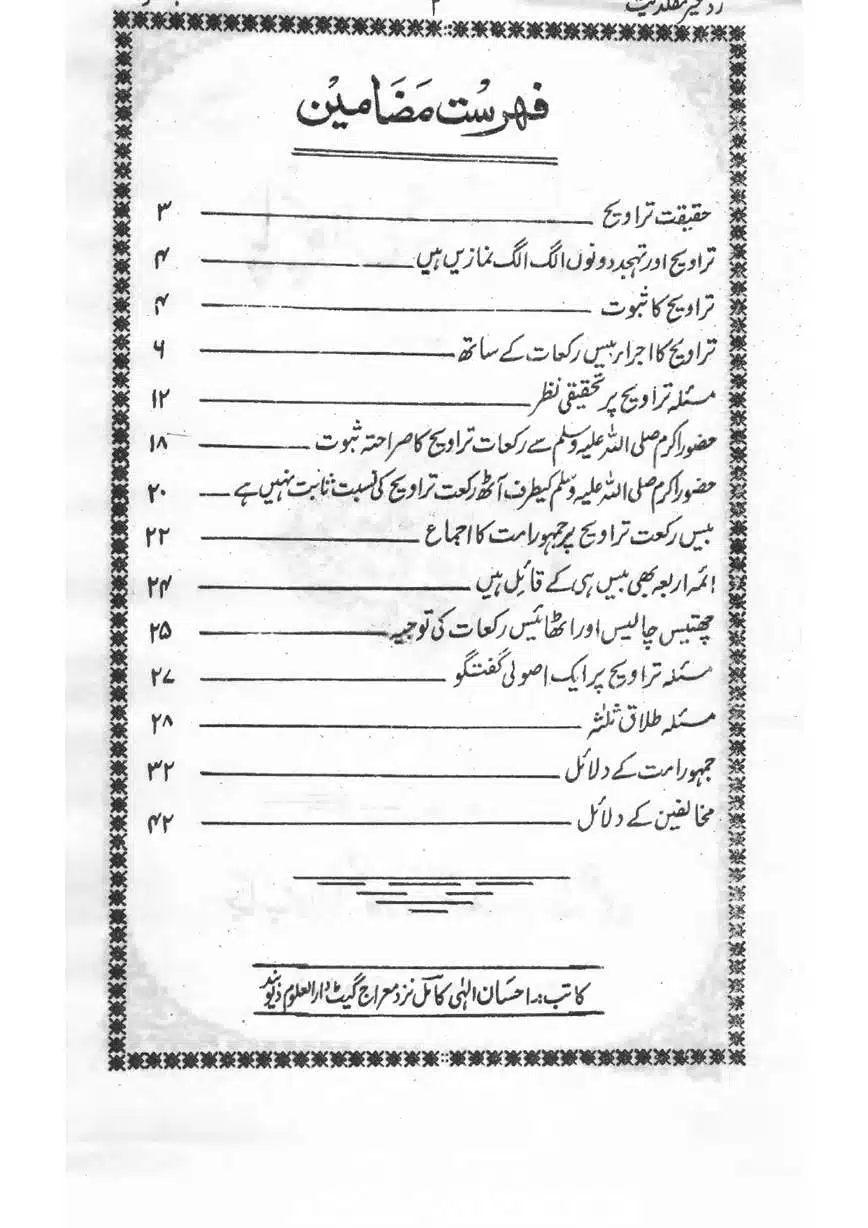 رد غیر مقلدیت ۲
فہرست مضامین
حقیقت تراویح ۳
تراویح اور تہجد دونوں الگ الگ نمازیں ہیں ۴
تراویح کا ثبوت ۴
تراویح کا اجراء بیس رکعات کے ساتھ ۶
مسئلہ تراویح پر تحقیقی نظر ۱۲
حضور اکرم صلی اللہ علیہ وسلم سے رکعات تراویح کا صراحتہ ثبوت ۱۸
حضور اکرم صلی اللہ علیہ وسلم کیطرف آٹھ رکعت تراویح کی نسبت ثابت نہیں ہے ۲۰
بیس رکعت تراویح پر جمہور امت کا اجماع ۲۲
ائمہ اربعہ بھی بیس ہی کے قائل ہیں ۲۴
چھتیس چالیس اور اٹھائیس رکعات کی توجیہ ۲۵
مسئلہ تراویح پر ایک اصولی گفتگو ۲۷
مسئلہ طلاق ثلٰثہ ۲۸
جمہور امت کے دلائل ۳۲
مخالفین کے دلائل ۴۲
کاتب: احسان الٰہی کامل نزد معراج گیٹ دارالعلوم دیوبند